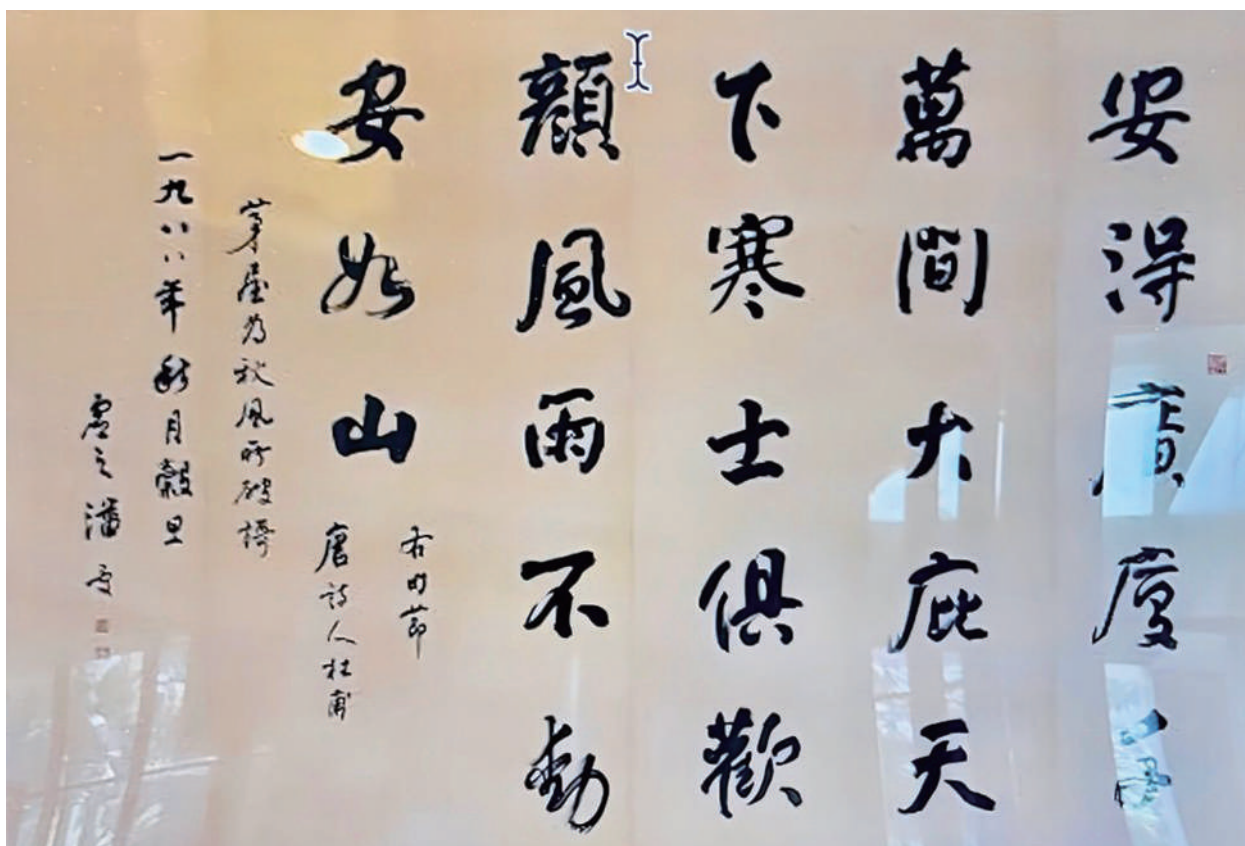 安得廣廈千
萬間大庇天
下寒士俱歡
顏風雨不動
安如山
右節
唐詩人杜甫
茅屋為秋風所破謌
一九八八年秋月穀旦
虛之潘受